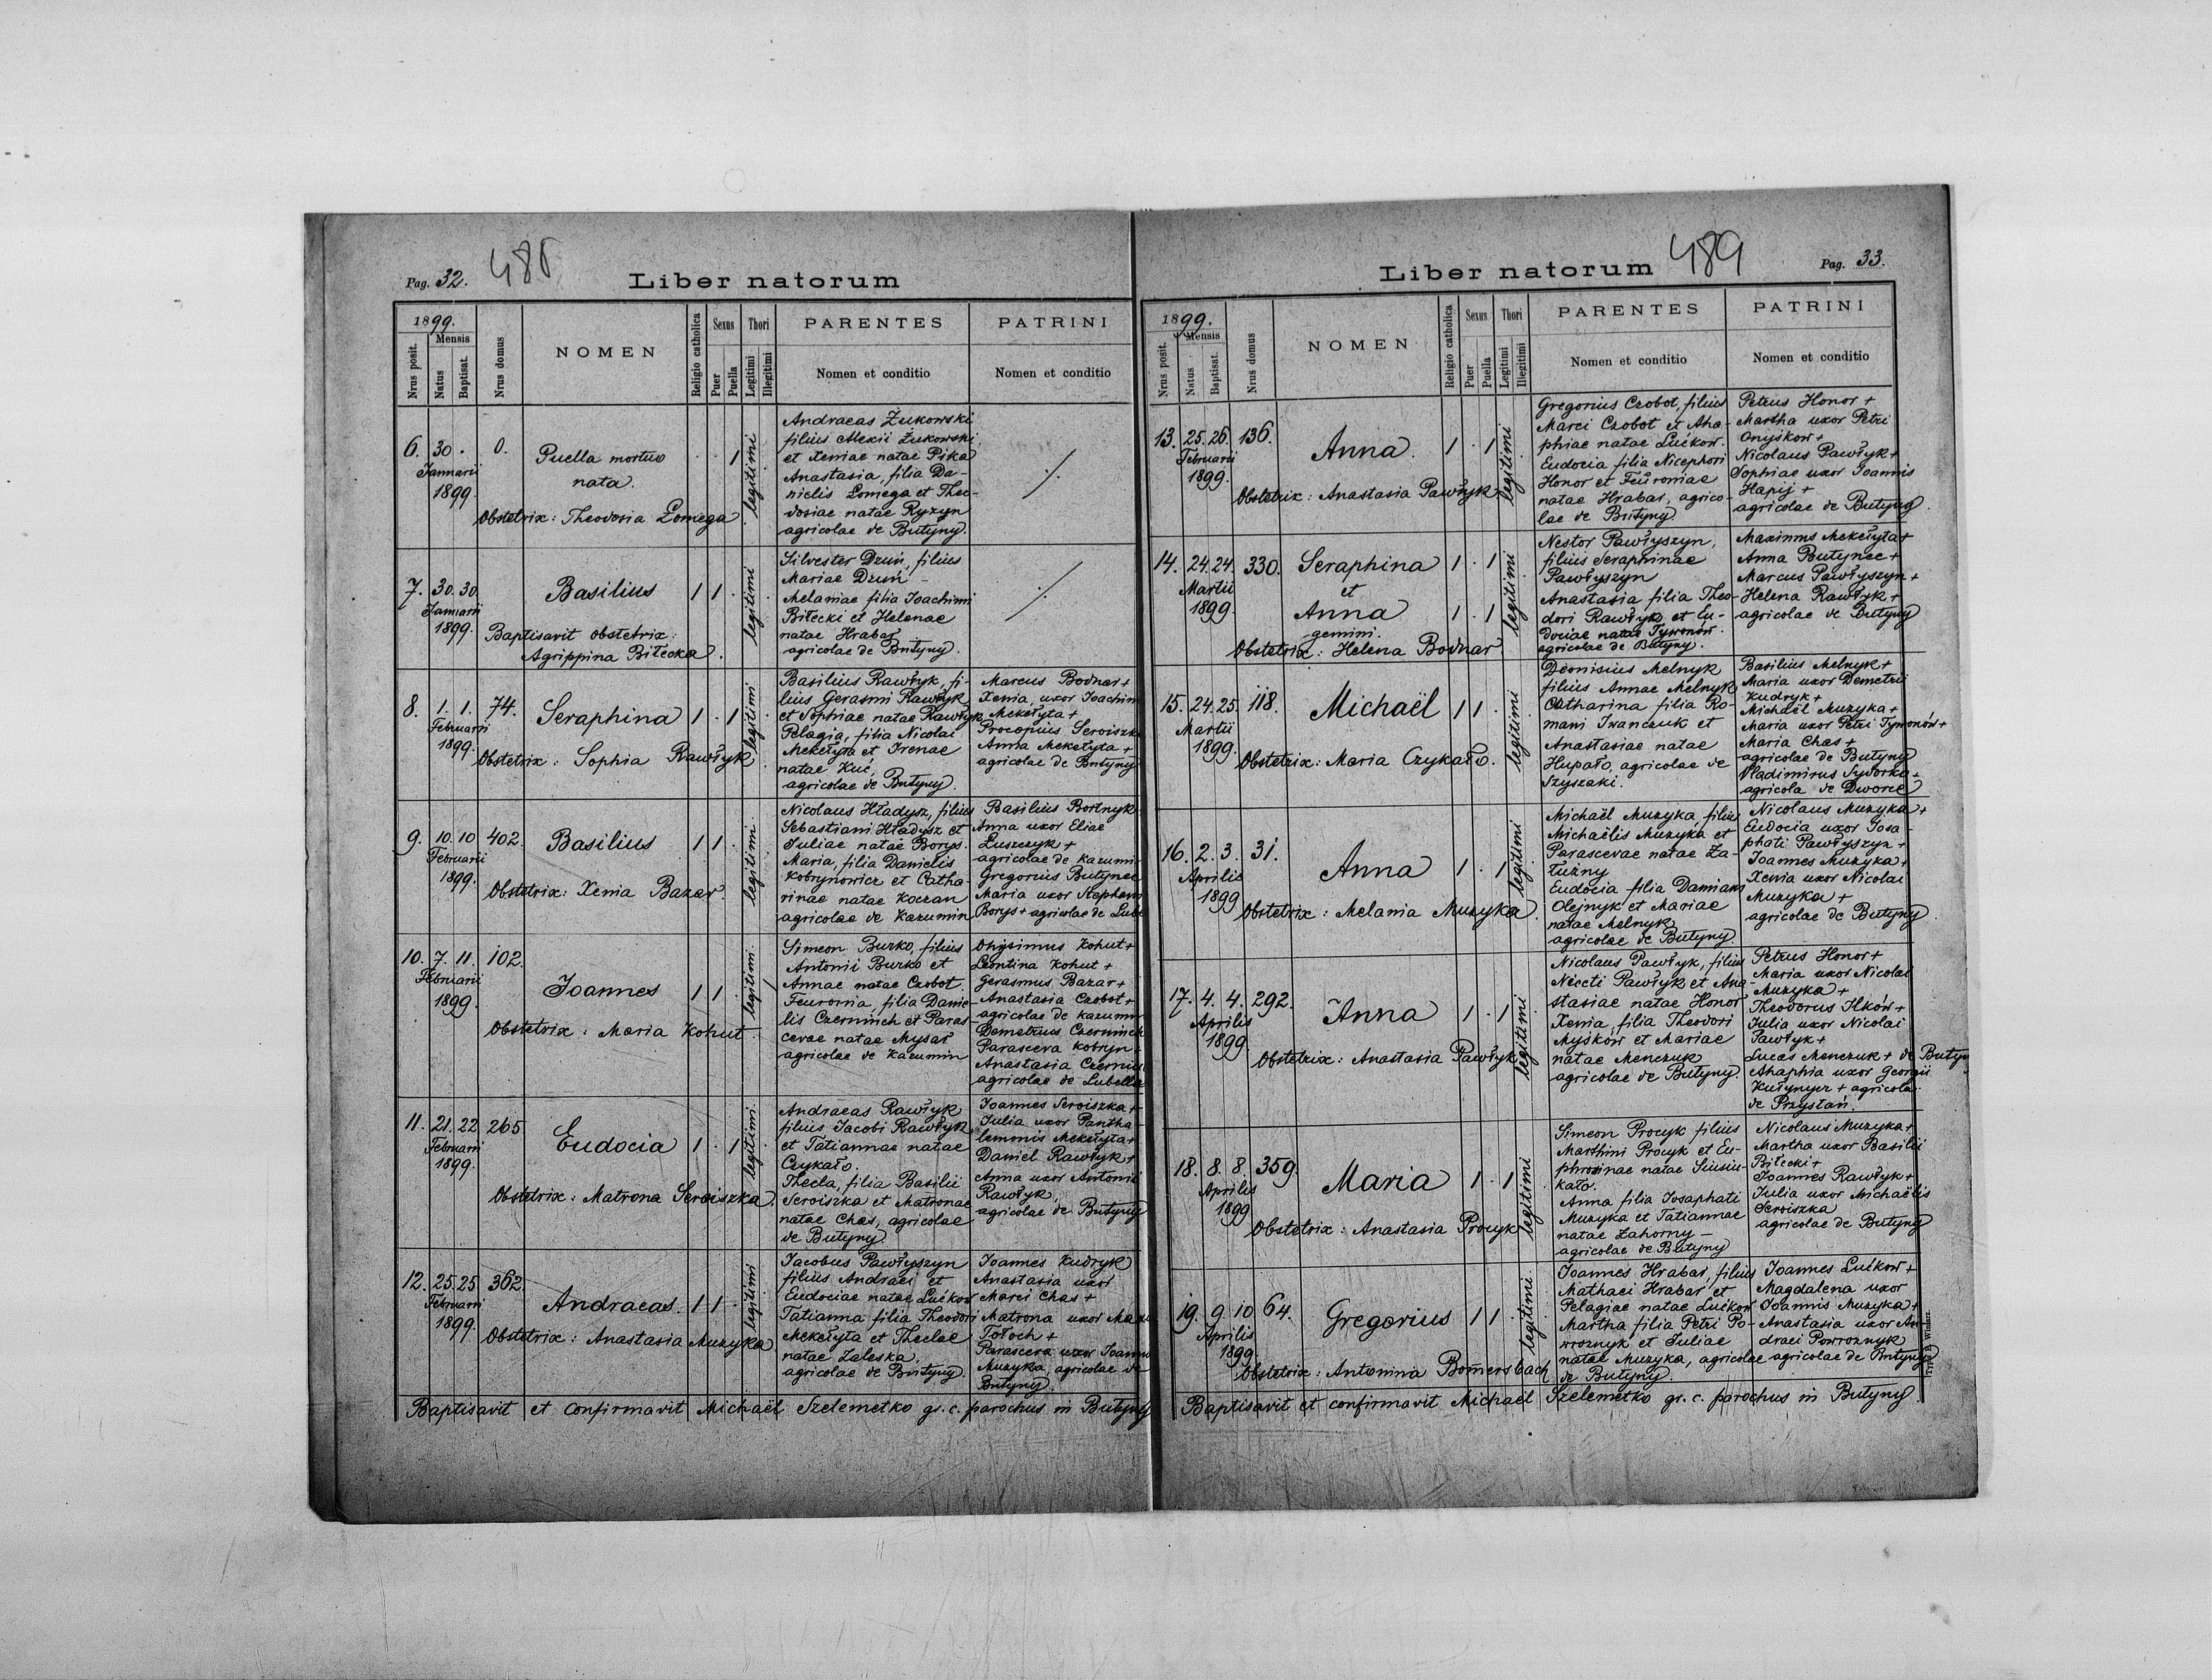 Pag. 32.
Liber natorum
1899.
Mensis
Nrus posit.
Natus
Baptisat.
Nrus domus
NOMEN
Religio catholica
Sexus
Puer
Puella
Thori
Legitimi
Illegitimi
PARENTES
Nomen et conditio
PATRINI
Nomen et conditio
6. 30 . 0.
Januarii
1899.
Puella mortuo
nata.
Obstetrix: Theodosia Łomega
1
legitimi
Andraeas Żukowski
filius Alexii Żukowski
et Xeniae natae Pika
Anastasia, filia Da-
nielis Łomega et Theo-
dosiae natae Ryzyn
agricolae de Butyny.
7. 30. 30.
Januarii
1899.
Basilius
1 1
Baptisavit obstetrix:
Agrippina Biłecka.
legitimi
Silvester Dzuń, filius
Mariae Dzuń -
Melaniae filia Joachimi
Biłecki et Helenae
natae Hrabar
agricolae de Butyny.
8. 1. 1. 74.
Februarii
1899.
Seraphina
1 . 1
Obstetrix: Sophia Rawłyk
legitimi
Basilius Rawłyk, fi-
lius Gerasmi Rawłyk
et Sophiae natae Rawłyk
Pelagia, filia Nicolai
Mekełyta et Irenae
natae Kuć,
agricolae de Butyny.
Marcus Bodnar +
Xenia, uxor Joachim
Mekełyta +
Procopius Seroiszka
Anna Mekełyta +
agricolae de Butyny
9. 10. 10 402.
Februarii
1899.
Basilius
1 1
Obstetrix: Xenia Bazar.
legitimi
Nicolaus Hładysz, filius
Sebastiani Hładysz et
Juliae natae Borys.
Maria, filia Danielis
Kobrynowicz et Catha-
rinae natae Koczan
agricolae de Kazumin
Basilius Bortnyk
Anna uxor Eliae
Łuszczyk +
agricolae de Kazumin
Gregorius Butynec
Maria uxor Stephani
Borys + agricolae de Lube
10. 7. 11. 102.
Februarii
1899.
Joannes
1 1
Obstetrix: Maria Kohut
legitimi
Simeon Burko, filius
Antonii Burko et
Annae natae Czobot.
Feuronia, filia Danie-
lis Czerninch et Paras-
cevae natae Mysar
agricolae de Kazumin
Onysimus Kohut +
Leontina Kohut +
Gerasmus Bazar +
Anastasia Czobot +
agricolae de Kazumin
Demetrius Czerninch
Parasceva Kobryn
Anastasia
agricolae de Lubella
11. 21. 22. 265.
Februarii
1899.
Eudocia
1 . 1
Obstetrix: Matrona Seroiszka.
legitimi
Andraeas Rawłyk
filius Jacobi Rawłyk
et Tatiannae natae
Czykało.
Thecla, filia Basilii
Seroiszka et Matronae
natae Chas, agricolae
de Butyny.
Joannes Seroiszka +
Julia uxor Pantha-
lemmis Mekełyta +
Daniel Rawłyk +
Anna uxor Antonii
Rawłyk,
agricolae de Butyny
12. 25. 25. 362.
Februarii
1899.
Andraeas.
1 1
Obstetrix: Anastasia Muzyka
legitimi
Jacobus Pawłyszyn
filius Andraei et
Eudociae natae Łućkow
Tatianna filia Theodori
Mekełyta et Theclae
natae Zaleska.
agricolae de Butyny.
Joannes Kudryk
Anastasia uxor
Marci Chas +
Matrona uxor
Tołoch +
Parasceva uxor Joannis
Muzyka, agricolae de
Butyny.
Baptisavit et confirmavit Michaël Szelemetko gr. c. parochus in Butyny
489
Liber natorum
Pag. 33.
1899.
Mensis
Nrus posit.
Natus
Baptisat.
Nrus domus
NOMEN
Religio catholica
Sexus
Puer
Puella
Thori
Legitimi
Illegitimi
PARENTES
Nomen et conditio
PATRINI
Nomen et conditio
13. 25. 26. 136.
Februarii
1899.
Anna.
1 . 1
Obstetrix: Anastasia Pawłyk
legitimi
Gregorius Czobot, filius
Marci Czobot et Aha-
phiae natae Łućkow.
Eudocia filia Nicephori
Honor et Feuroniae
natae Hrabar, agrico-
lae de Butyny.
Petrus Honor +
Martha uxor Petri
Onyśkow +
Nicolaus Pawłyk +
Sophiae uxor Joannis
Hapij +
agricolae de Butyny.
14. 24. 24. 330.
Martii
1899.
Seraphina
1 . 1
et
Anna
1 . 1
gemini.
Obstetrix: Helena Bodnar
legitimi
Nestor Pawłyszyn,
filius Seraphinae
Pawłyszyn
Anastasia filia Theo-
dori Rawłyk et Eu-
dociae natae Tymonów.
agricolae de Butyny.
Maximus Mekełyta +
Anna Butynec +
Marcus Pawłyszyn +
Helena Rawłyk +
agricolae de Butyny
15. 24. 25. 118.
Martii
1899.
Michaël
1 1
Obstetrix: Maria Czykało.
legitimi
Dionisius Melnyk
filius Annae Melnyk
Catharina filia Ro-
mani Iwanczuk et
Anastasiae natae
Hupało, agricolae de
Szyszaki.
Basilius Melnyk +
Maria uxor Demetrii
Kudryk +
Michaël Muzyka +
Maria uxor Petri Tymonów +
Maria Chas +
agricolae de Butyny
Vladimirus Sydorko +
agricola de Dworce
16. 2. 3. 31.
Aprilis
1899
Anna
1 . 1
Obstetrix: Melania Muzyka.
legitimi
Michaël Muzyka, filius
Michaëlis Muzyka et
Parascevae natae Za-
łużny
Eudocia filia Damiani
Olejnyk et Mariae
natae Melnyk
agricolae de Butyny.
Nicolaus Muzyka +
Eudocia uxor Josa-
phati Pawłyszyn +
Joannes Muzyka +
Xenia uxor Nicolai
Muzyka +
agricolae de Butyny.
17. 4. 4. 292.
Aprilis
1899
Anna
1 . 1
Obstetrix: Anastasia Pawłyk
legitimi
Nicolaus Pawłyk, filius
Niceti Pawłyk et Ana-
stasiae natae Honor
Xenia, filia Theodori
Myśków et Mariae
natae Menczuk
agricolae de Butyny.
Petrus Honor +
Maria uxor Nicolai
Muzyka +
Theodorus Ilków +
Julia uxor Nicolai
Pawłyk +
Lucas Menczuk + de Butyn
Ahaphia uxor Georgii
Kułynycz + agricolae
de Przystań.
18. 8. 8. 359.
Aprilis
1899
Maria
1 . 1
Obstetrix: Anastasia Procyk
legitimi
Simeon Procyk filius
Marthini Procyk et Eu-
phrosinae natae Siusiu-
kało.
Anna filia Josaphati
Muzyka et Tatiannae
natae Zahorny -
agricolae de Butyny
Nicolaus Muzyka +
Martha uxor Basilii
Biłecki +
Joannes Rawłyk +
Julia uxor Michaëlis
Seroiszka
agricolae de Butyny
19. 9. 10 64.
Aprilis
1899.
Gregorius
1 1
Obstetrix: Antonina Bomersbach
legitimi
Joannes Hrabar, filius
Mathaei Hrabar et
Pelagiae natae Łućkow
Martha filia Petri Po-
wroznyk et Juliae
natae Muzyka, agricolae
de Butyny.
Joannes Łućkow +
Magdalena uxor
Joannis Muzyka +
Anastasia uxor An-
draei Powroznyk
agricolae de Butyny
Baptisavit et confirmavit Michaël Szelemetko gr. c. parochus in Butyny.